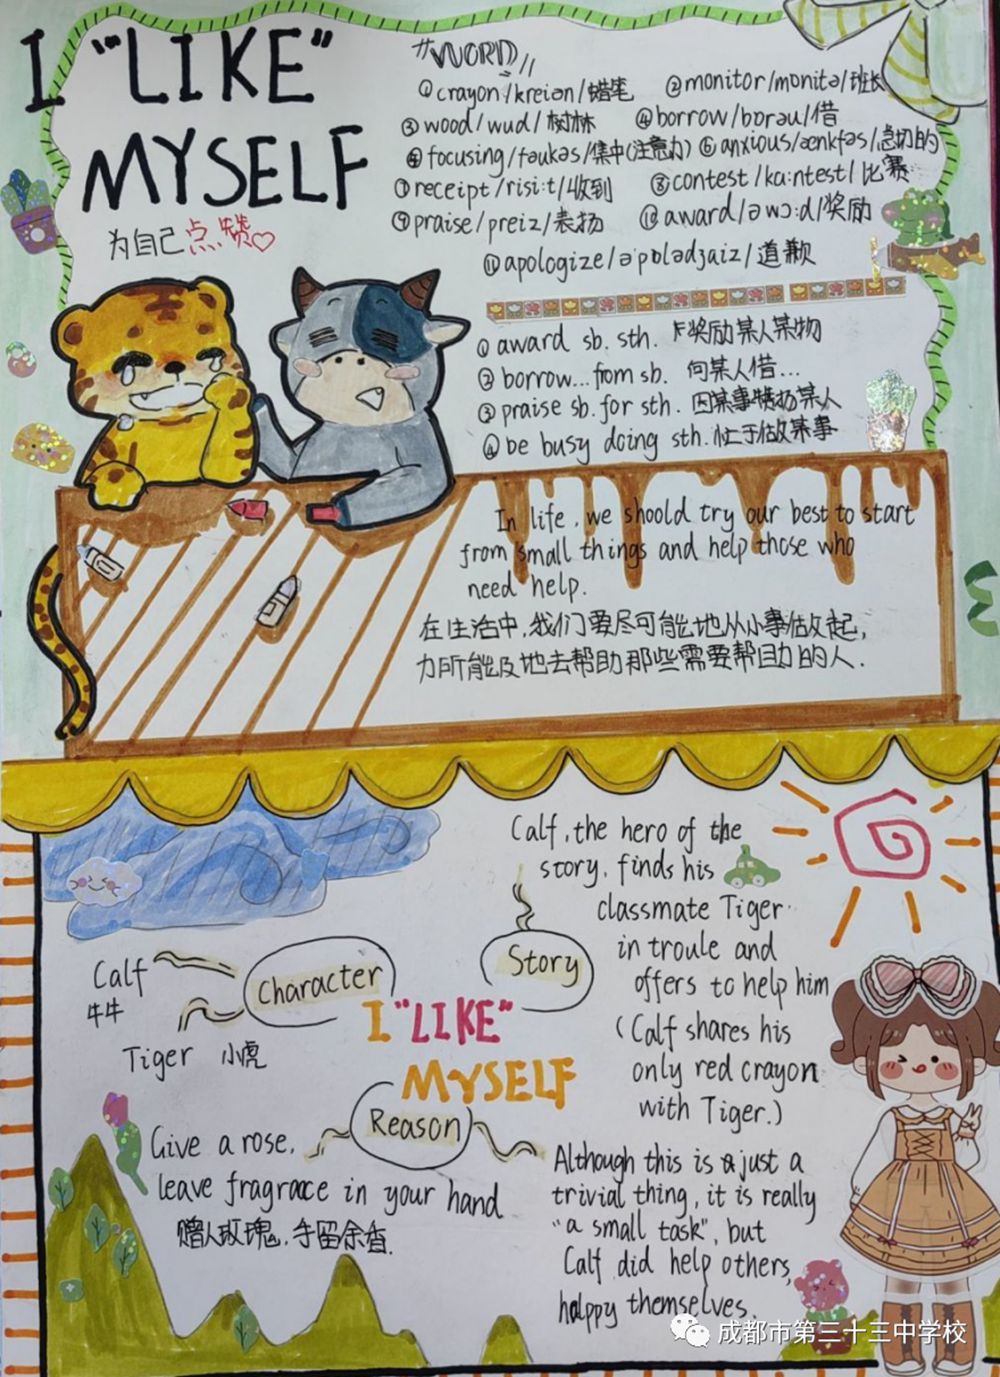 I "LIKE"
MYSELF
为自己点赞
"WORD"
①crayon/kreiən/蜡笔 ②monitor/monitə/班长
③wood/wud/树林 ④borrow/bɒrəu/借
④focusing/fəukəs/集中(注意力) ⑥anxious/æenkʃəs/急切的
⑦receipt/risi:t/收到 ⑧contest/ka:ntest/比赛
⑨praise/preiz/表扬 ⑩award/əwɔ:d/奖励
⑪apologize/ə'pɒlədʒaiz/道歉
①award sb. sth. 奖励某人某物
②borrow...from sb. 向某人借...
③praise sb. for sth. 因某事赞扬某人
④be busy doing sth.忙于做某事
In life, we shoold try our best to start
from small things and help those who
need help.
在生活中,我们要尽可能地从小事做起,
力所能及地去帮助那些需要帮助的人.
Calf, the hero of the
story, finds his
classmate Tiger
in troule and
offers to help him
(Calf shares his
only red crayon
with Tiger.)
Story
Character
Calf
牛牛
Tiger 小虎
I "LIKE"
MYSELF
Reason
Give a rose,
leave fragrace in your hand
赠人玫瑰,手留余香.
Although this is just a
trivial thing, it is really
"a small task", but
Calf did help others,
happy themselves.
成都市第三十三中学校